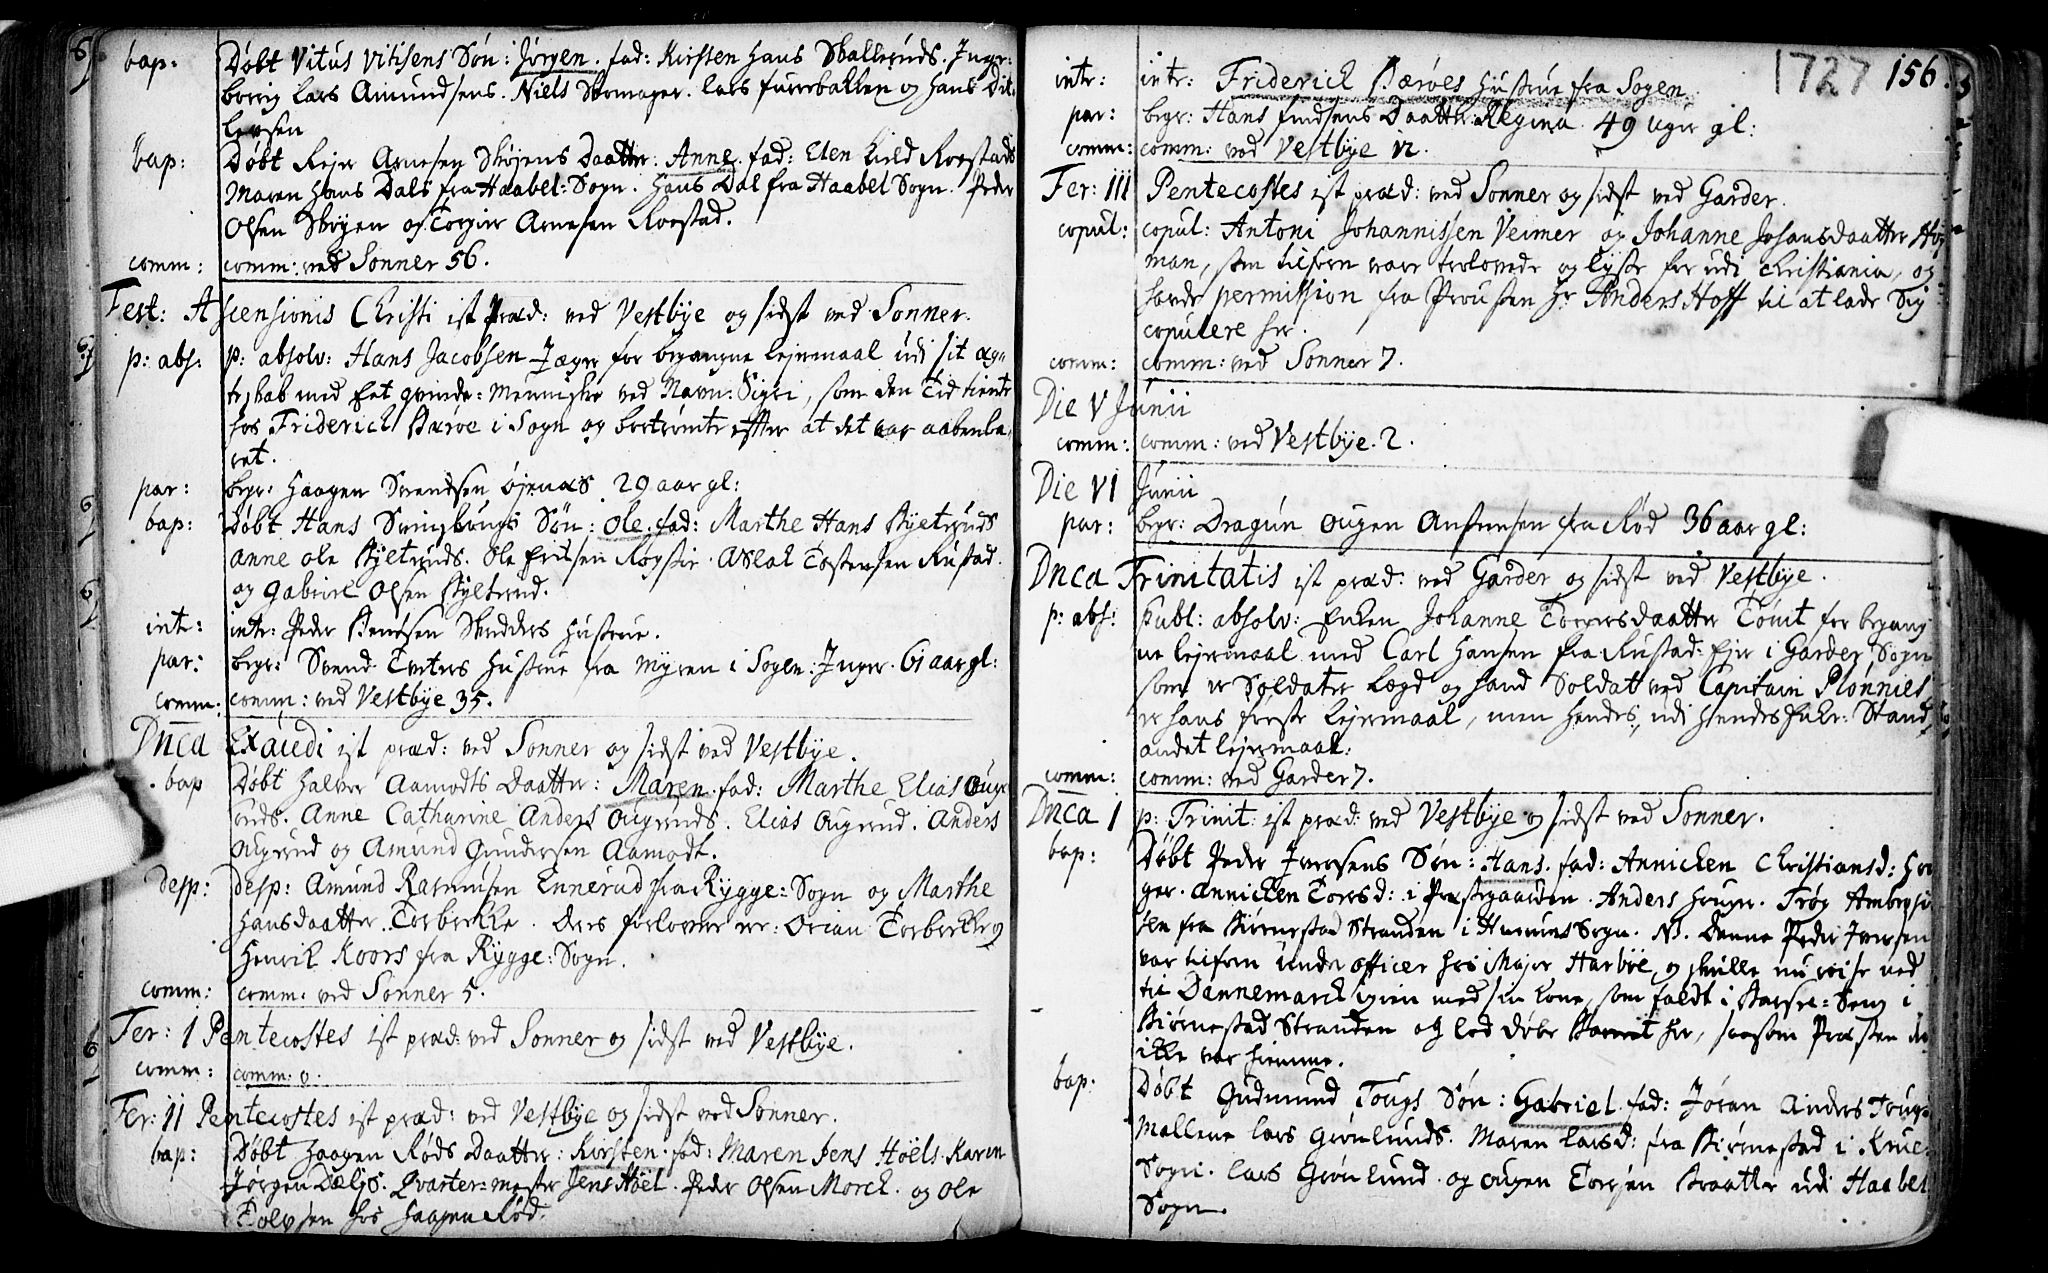 bap: Døbt Vitus Vitisens Søn: Jørgen. fad: Kirsten Hans Skalleruds. Inge-
borrig Lars Amundsens. Niels Skomager. Lars furrebakken og Hans Dit-
levsen
bap: Døbt Rejer Arnesen Skøjens Daatter: Anne. fad: Elen Kield Roestads
Maren Hans Dals fra Haabel: Sogn. Hans Dal fra Haabel Sogn. Peder
Olsen Skøyen og Torgier Arnesen Roestad.
comm: comm: ved Sonner 56.
Fest: Ascensionis Christi ist Præd: ved Vestbÿe og sidst ved Sonner.
p: abs: p: absolv: Hans Jacobsen Jæger for begangne lejermaal udi sit ægte-
skab med Eet qvinde-Menniske ved Navn: Sigri, som den Tid tiente
hos Friderich Bærøe i Sogn og bortrømte effter at det var aabenba-
ret.
par: begr: Haagen Svendsen Øjenæs 29 aar gl:
bap: Døbt Hans Svingbungs Søn: Ole. fad: Marthe Hans Kjeltruds
Anne Ole Kjeltruds. Ole Erichsen Aslak Tostensen Rustad.
og Gabriel Olsen Kjeltrud.
intr: intr: Peder Skredders Hustrue.
par: begr: Svend Hustrue fra Myren i Sogen: Inger. 61 aar gl:
comm: comm: ved Vestbÿe 35.
Dnca Exaudi ist præd: ved Sonner og sidst ved Vestbÿe.
bap Døbt Halvor Aamodts Daatter: Maren. fad: Marthe Elias Ouge-
ruds. Anne Catharine Anders Ougeruds. Elias Ougerud. Anders
Ougerud og Amund Gundersen Aamodt.
desp: desp: Amund Rasmusen Ennerud fra Rÿgge: Sogn og Marthe
Hansdaatter Torbrekke. Deres forlovere er: Orian Torbrekke og
Henrik Koors fra Rÿgge: Sogn.
comm: comm: ved Sonner 5.
Fer: I Pentecostes ist præd: ved Sonner og sidst ved Vestbÿe.
comm: comm: 0.
Fer: II Pentecostes ist præd: ved Vestbÿe og sidst ved Sonner.
bap: Døbt Haagen Røds Daatter: Kirsten. fad: Maren Jens Høels. Karen
Jørgen Dæljs. Qvarter-mester Jens Høel. Peder Olsen Morck. og Ole
hos Haagen Rød.
1727 156.
intr: intr: Friderich Bærøes Hustrue fra Sogen
par: begr: Hans findsens Daatter Regina. 49 uger gl:
comm: comm: ved Vestbÿe 12.
Fer: III Pentecostes ist præd: ved Sonner og sidst ved Garder.
copul: copul: Antoni Johannissen Veimer og Johanne Johansdaatter
man, som tilforn vare trolovede og lyste for udi Christiania, og
hafde permission fra Provsten Hr Anders Hoff til at lade Sig
copulere her.
comm: comm: ved Sonner 7.
Die V Junii
comm: comm: ved Vestbÿe. 2.
Die VI Junii
par: begr: Dragun Ougen Anstensen fra Rød 36 aar gl:
Dnca Trinitatis ist præd: ved Garder og sidst ved Vestbÿe.
p: abs: publ: absolv: Enken Johanne Torersdaatter Tomt for begang-
ne lejermaal med Carl Hansen fra Rustad-Ejer i Garder Sogn
som er Soldater Lægd og hand Soldat ved Capitain Plønnies
er hans første lejermaal, men hendes, udi hendes Enke-Stand,
andet lejermaal.
comm: comm: ved Garder 7.
Dnca I p: Trinit: ist præd: ved Vestbÿe og sidst ved Sonner.
bap: Døbt Peder Iversens Søn: Hans. fad: Annichen Christiansd: Hou-
ger. Annichen Toresd: i Præstegaarden. Anders Houger. Trøg Ambrosi-
sen fra Kiørnestad Stranden i Sogn. NB. Denne Peder Iversen
var tilforn under officer hos Major Harboe, og skulle nu reise ned
til Dannemarck igien med sin Kone, som faldt i Barsel-Seng i
Kiørnestad Stranden og lod døbe Barnet her, saasom Præsten der
ikke var hiemme.
bap: Døbt Gudmund Tougs Søn: Gabriel. fad: Jøran Anders Toug-
Mallene Lars Grønlunds. Maren Larsd: fra Kiørnestad i
Sogn. Lars Grønlund. og Ougen Toresen Braatte udi Haabel
Sogn.